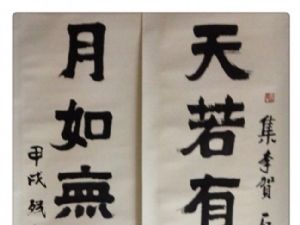 集李賀
天若有
月如無
甲戌